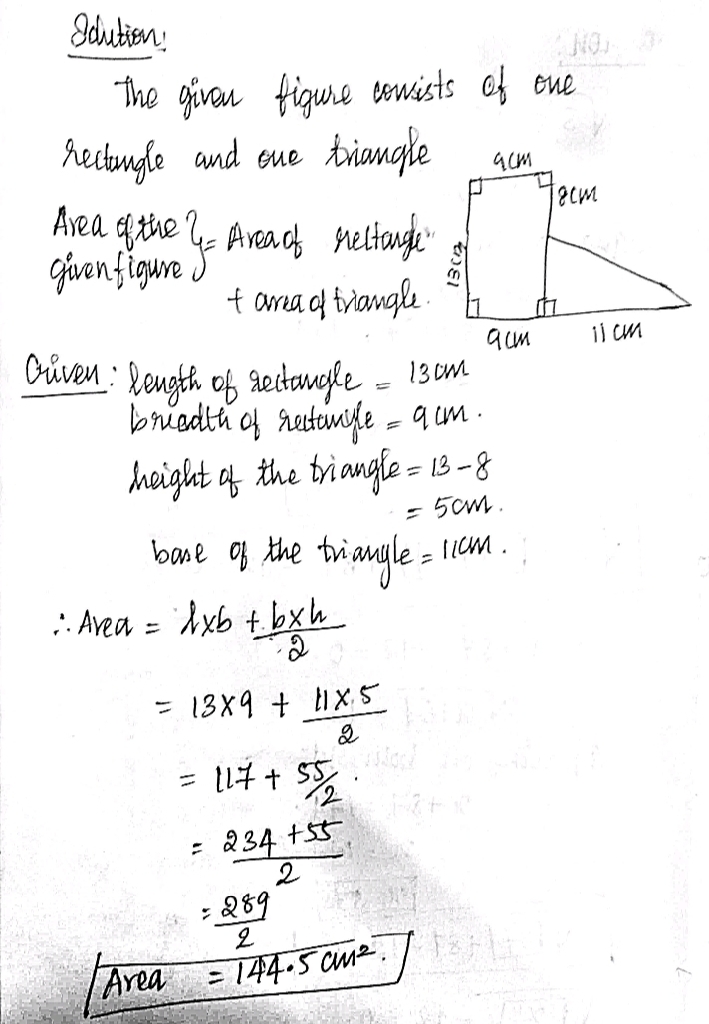 Solution:
The given figure consists of one
rectangle and one triangle
9cm
8cm
Area of the } = Area of rectangle
given figure
13cm
+ area of triangle.
9cm 11 cm
Given: length of rectangle = 13cm
breadth of rectangle = 9cm.
height of the triangle = 13-8
= 5cm.
base of the triangle = 11cm.
∴ Area = lxb + bxh/2
= 13x9 + 11x5/2
= 117 + 55/2.
= 234+55/2
= 289/2
Area = 144.5 cm².